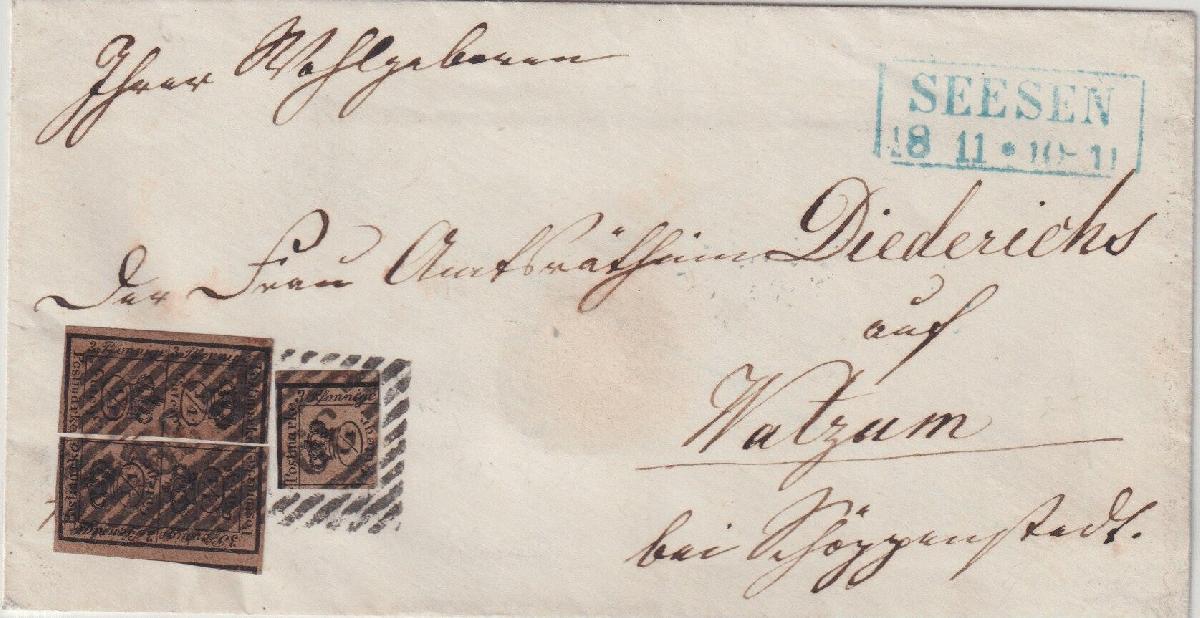 Ihrer Wohlgeboren
SEESEN
18 11 * 10-11
Der Frau Amtsräthin Diederichs
auf
Watzum
bei Schöppenstedt.
3 Pfennige
Postmarke